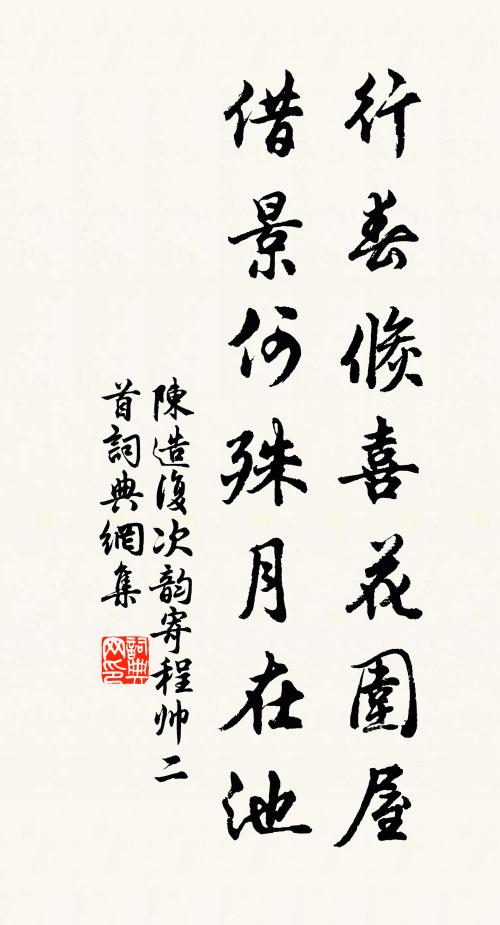 行春倏喜花圍屋
借景何殊月在池
陳造復次韵寄程帅二
首詞典網集
詞典
网印